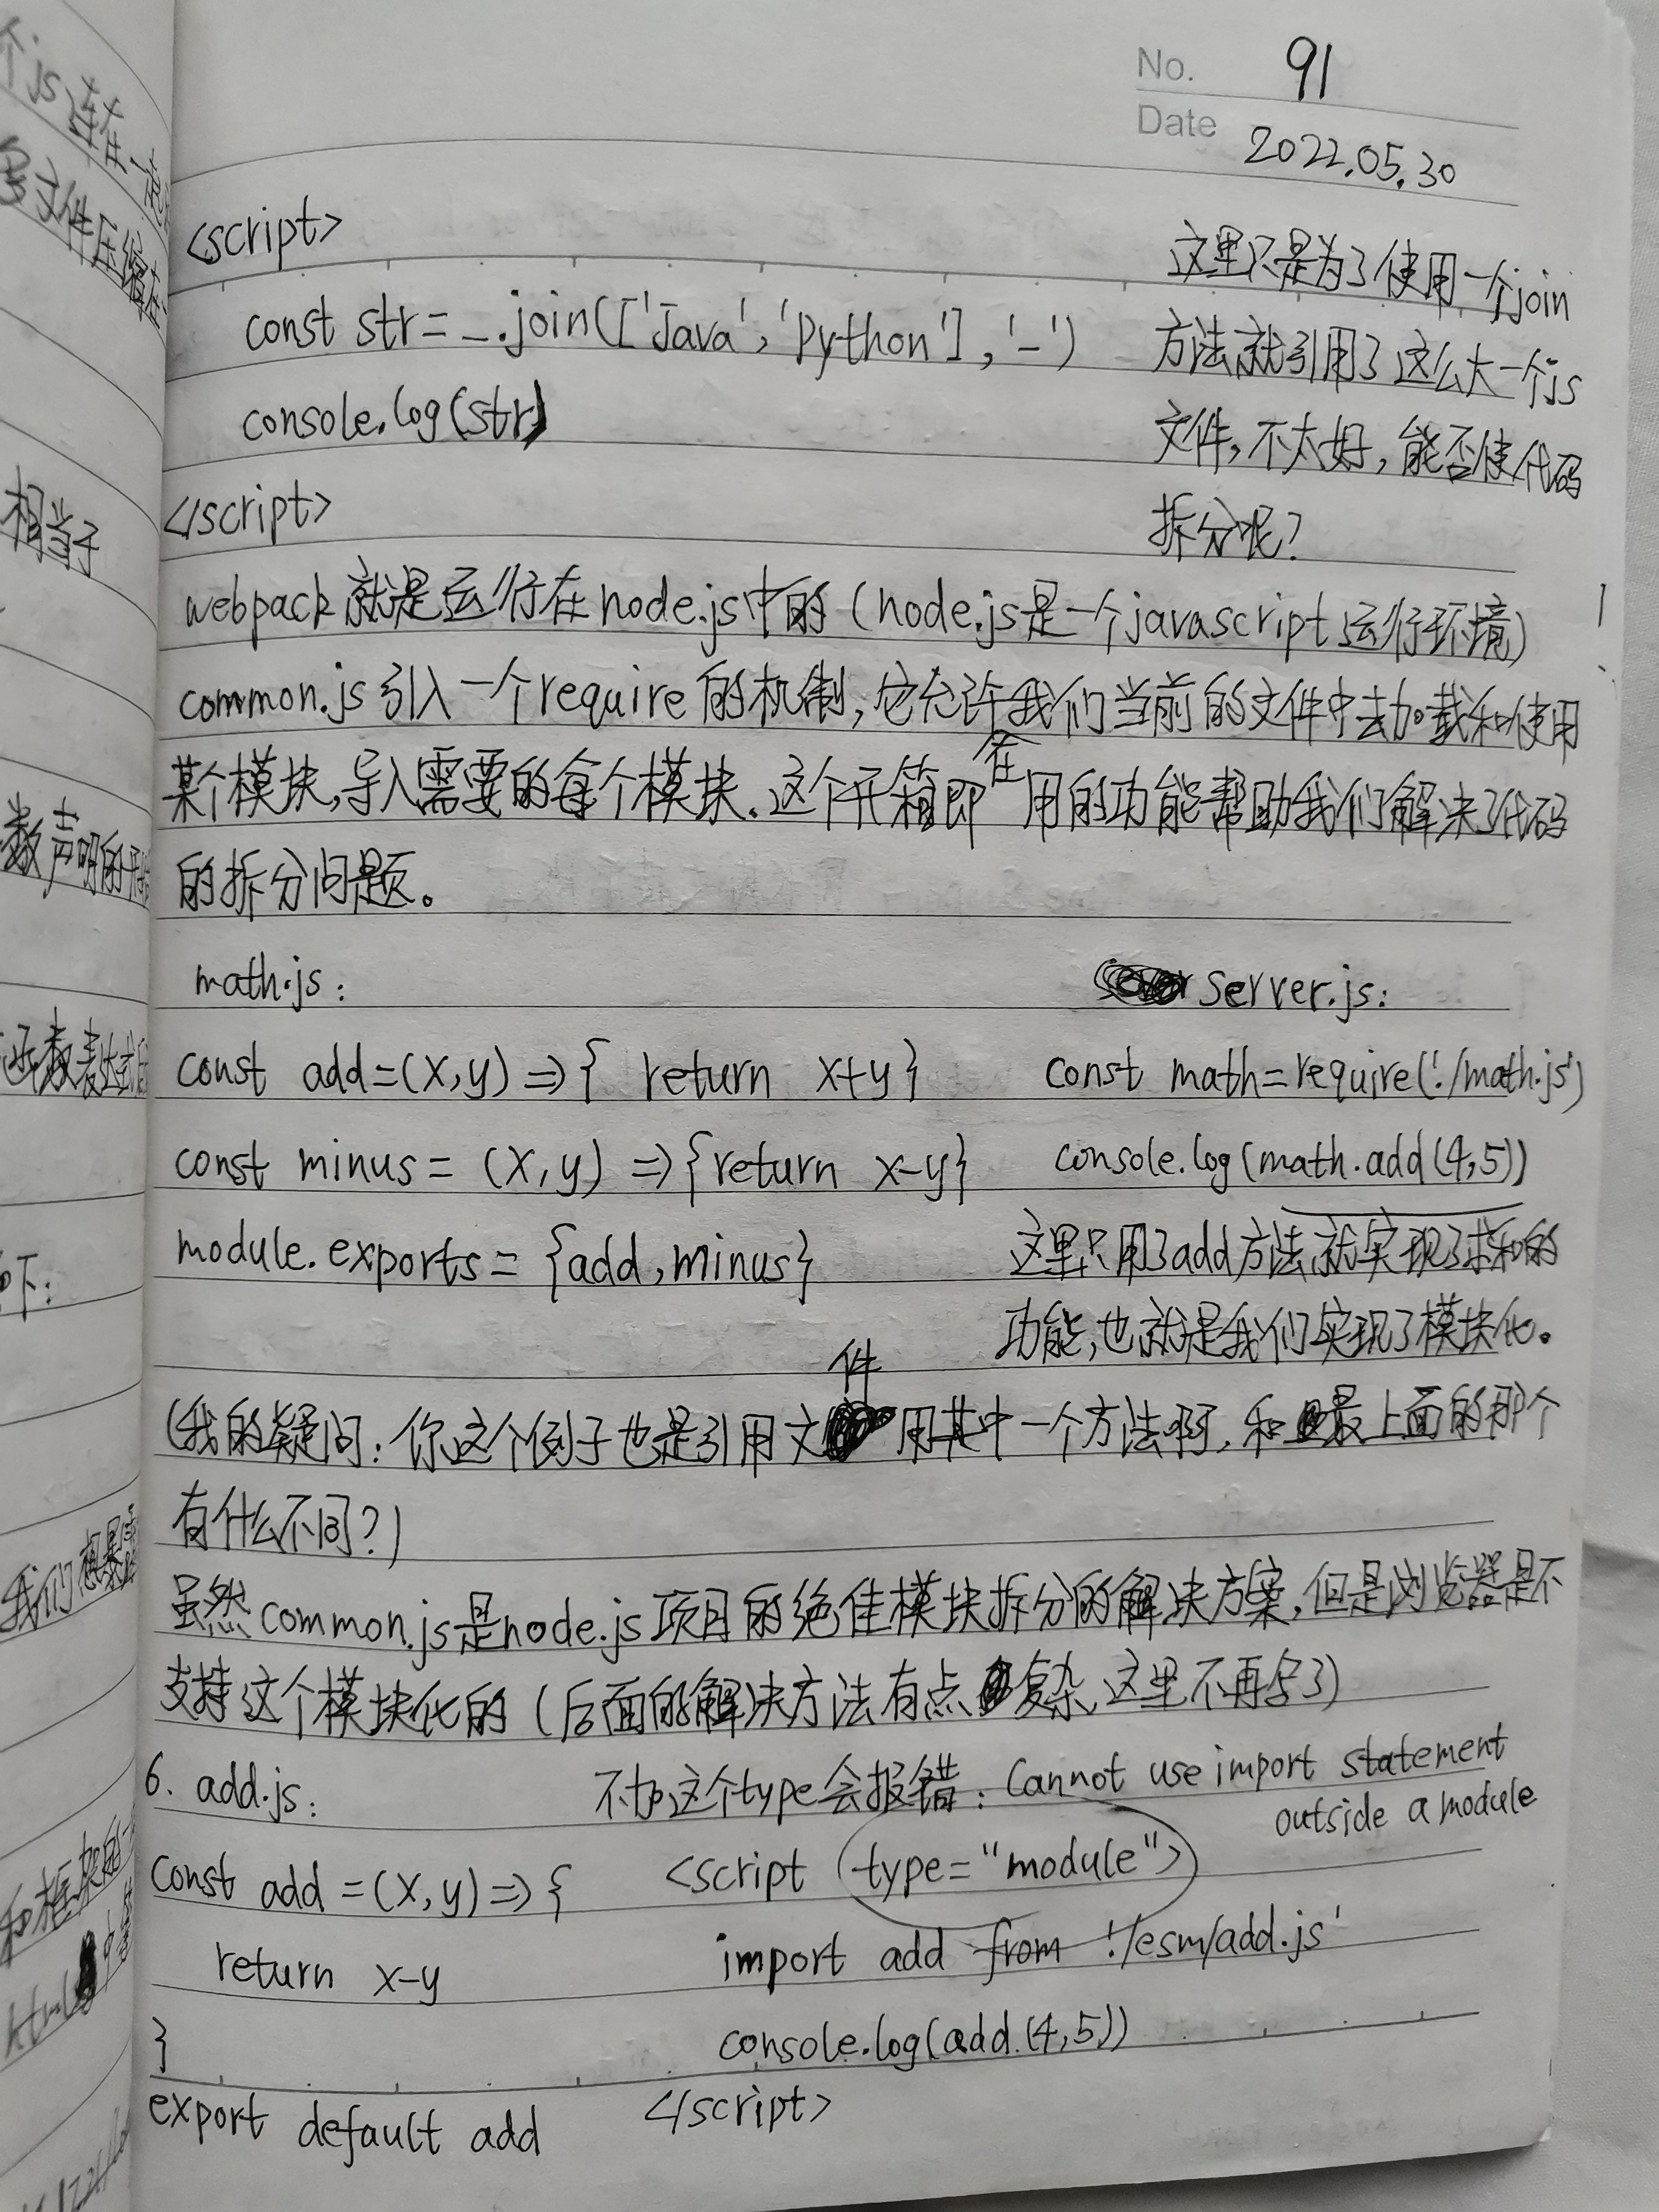 个js连在一起
多文件压缩在
相当于
数声明的形
函数表达式
下:
我们想暴露
和框架的
html
No. 91
Date 2022.05.30
<script>
const str = _.join(['Java', 'Python'], '-')
console.log(str)
</script>
这里只是为了使用一个join
方法就引用了这么大一个js
文件,不太好,能否使代码
拆分呢?
webpack就是运行在node.js中的(node.js是一个javascript运行环境)
common.js引入一个require的机制,它允许我们当前的文件中去加载和使用
某个模块,导入需要的每个模块.这个开箱即在用的功能帮助我们解决了代码
的拆分问题。
math.js:
const add=(x,y)=>{ return x+y}
const minus= (x,y) =>{return x-y}
module.exports= {add,minus}
server.js:
const math=require('./math.js')
console.log(math.add(4,5))
这里只用了add方法就实现了求和的
功能,也就是我们实现了模块化。
(我的疑问:你这个例子也是引用文件用其中一个方法啊,和最上面的那个
有什么不同?)
虽然common.js是node.js项目的绝佳模块拆分的解决方案,但是浏览器是不
支持这个模块化的(后面的解决方法有点复杂,这里不再写了)
6. add.js:
const add =(x,y)=>{
return x-y
}
export default add
不加这个type会报错:Cannot use import statement
outside a module
<script type="module">
import add from './esm/add.js'
console.log(add.(4,5))
</script>